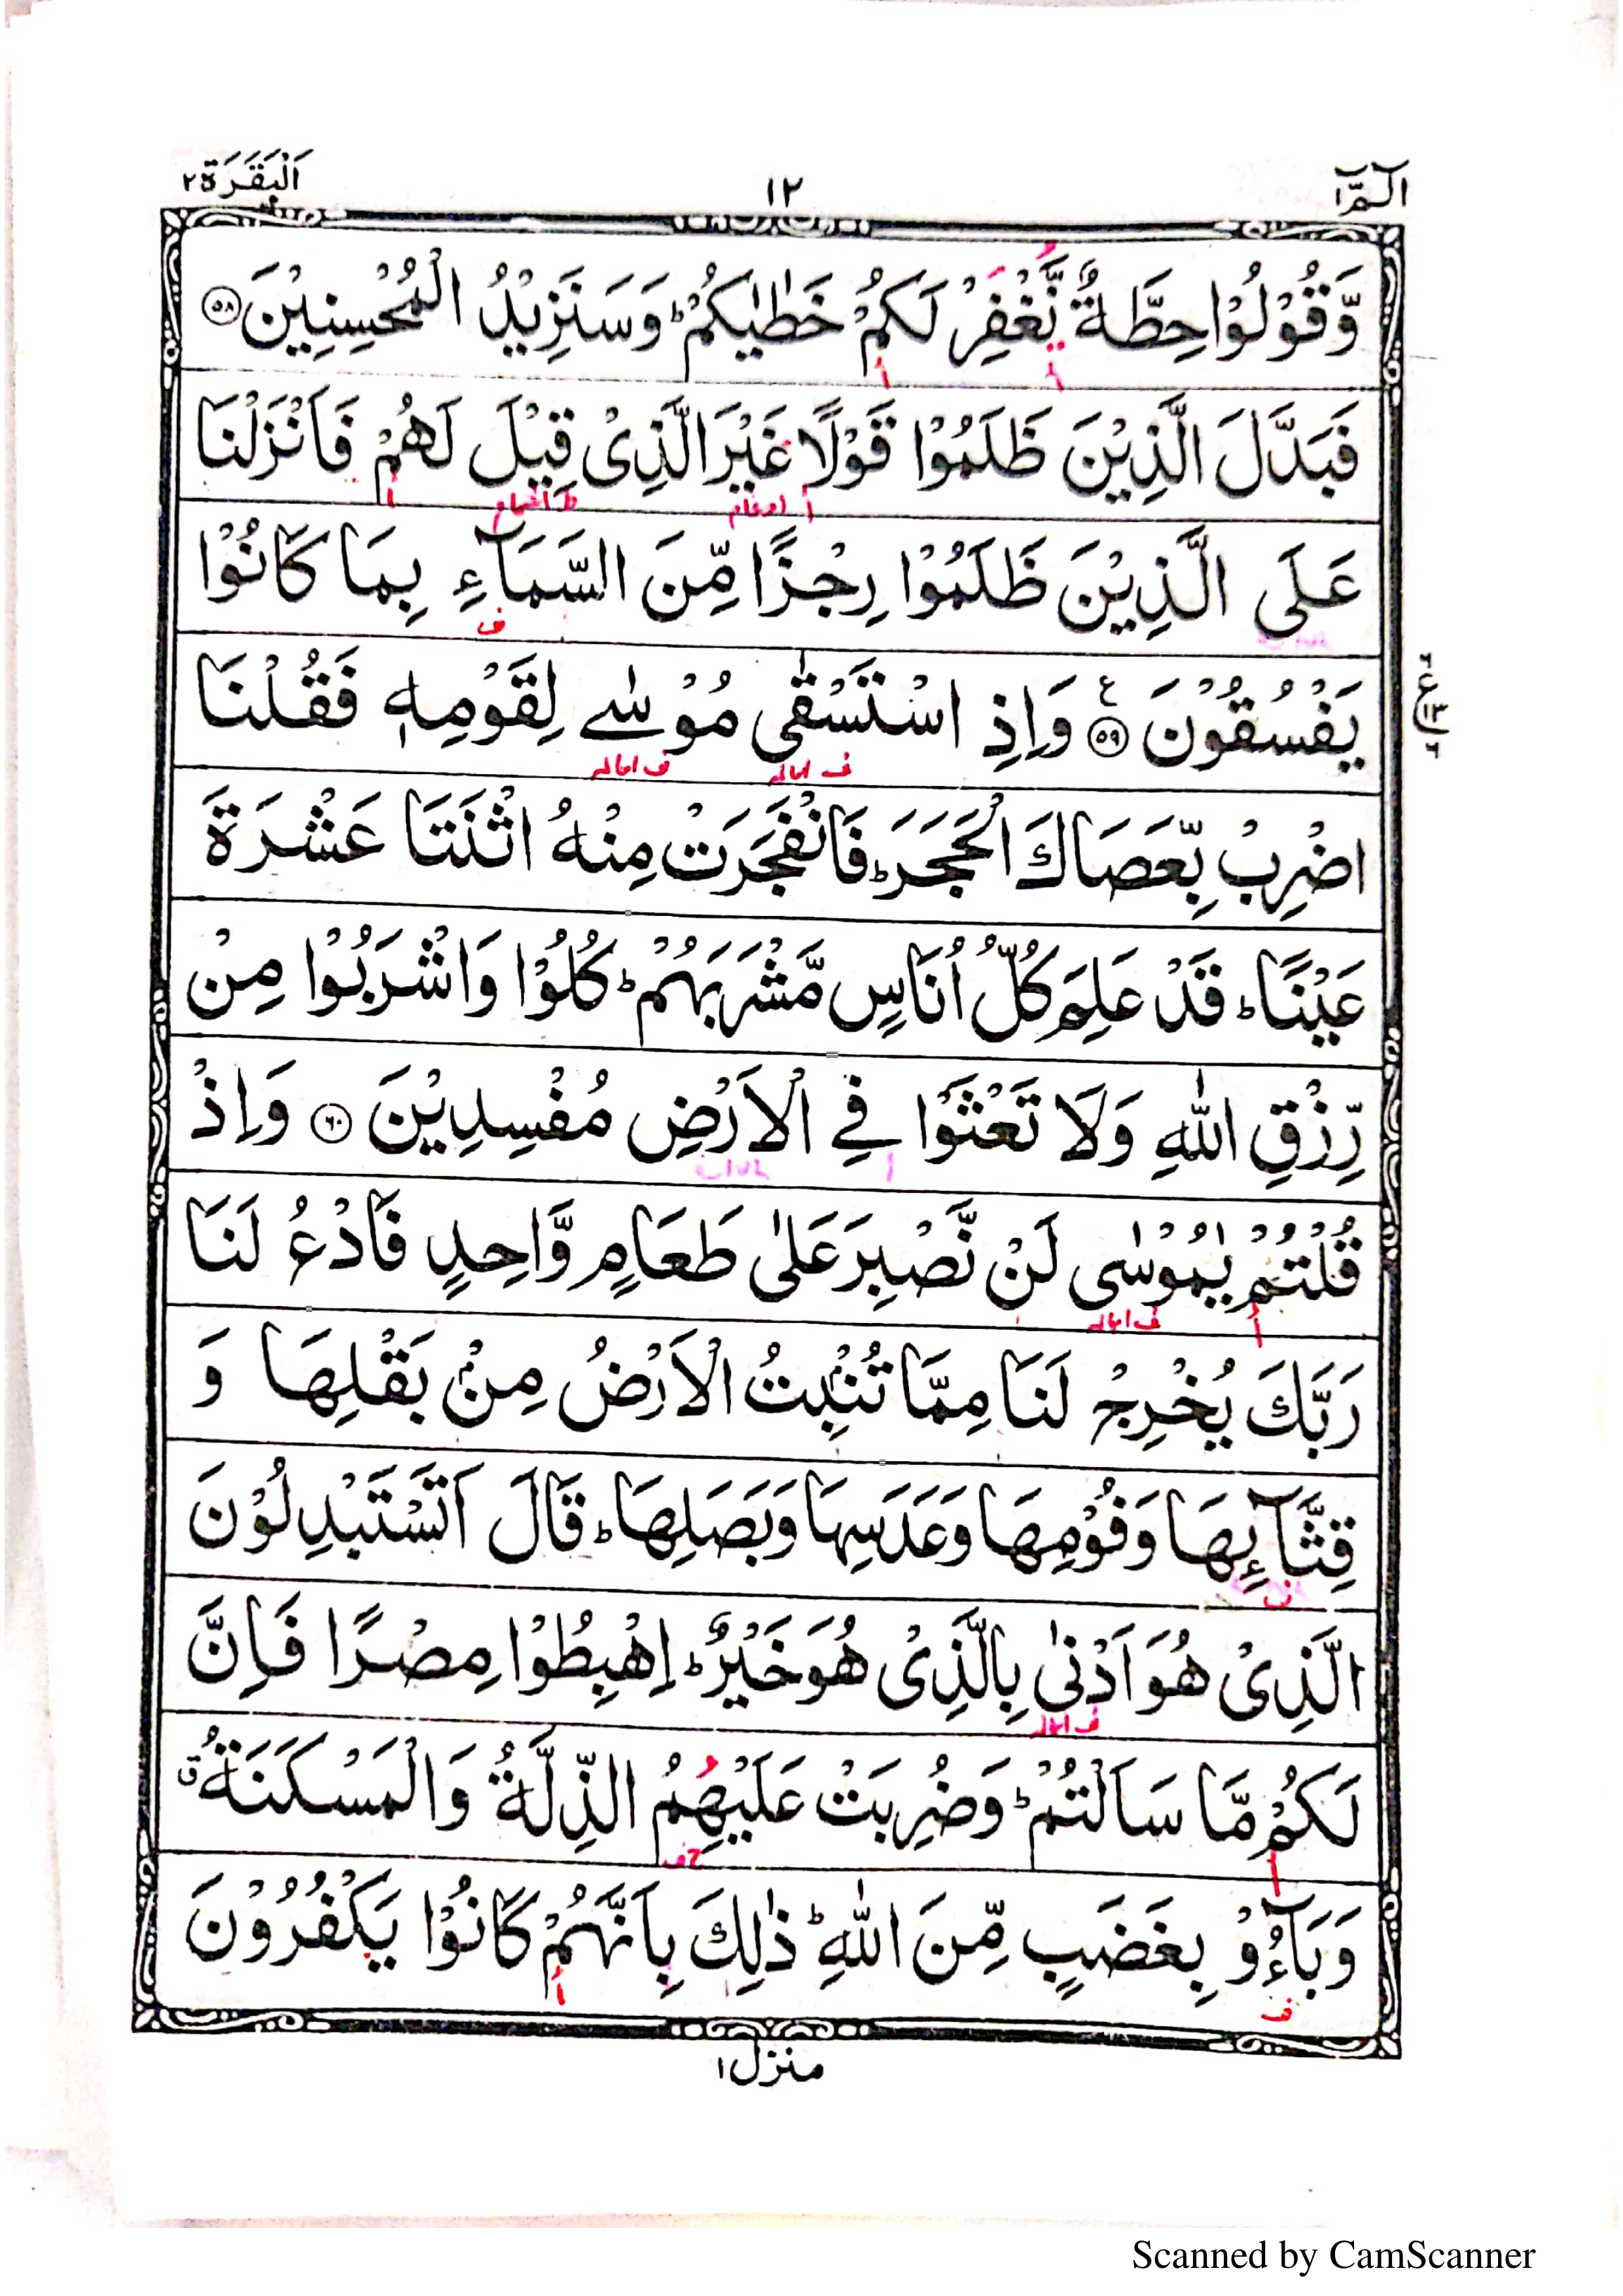 الٓمّٓ ١
١٢
اَلْبَقَرَة ٢
وَّقُوْلُوْا حِطَّةٌ نَّغْفِرْ لَكُمْ خَطٰيٰكُمْ ؕ وَسَنَزِيْدُ الْمُحْسِنِيْنَ ۝۵۸
فَبَدَّلَ الَّذِيْنَ ظَلَمُوْا قَوْلًا غَيْرَ الَّذِىْ قِيْلَ لَهُمْ فَاَنْزَلْنَا
أ ادغام اشمام أ
عَلَى الَّذِيْنَ ظَلَمُوْا رِجْزًا مِّنَ السَّمَآءِ بِمَا كَانُوْا
ف
يَفْسُقُوْنَ ۝۵۹ ع وَاِذِ اسْتَسْقٰى مُوْسٰے لِقَوْمِهٖ فَقُلْنَا
ف اماله ف اماله
اضْرِبْ بِّعَصَاكَ الْحَجَرَ ؕ فَانْفَجَرَتْ مِنْهُ اثْنَتَا عَشْرَةَ
عَيْنًا ؕ قَدْ عَلِمَ كُلُّ اُنَاسٍ مَّشْرَبَهُمْ ؕ كُلُوْا وَاشْرَبُوْا مِنْ
رِّزْقِ اللّٰهِ وَلَا تَعْثَوْا فِے الْاَرْضِ مُفْسِدِيْنَ ۝۶۰ وَاِذْ
قُلْتُمْ يٰمُوْسٰى لَنْ نَّصْبِرَ عَلٰى طَعَامٍ وَّاحِدٍ فَادْعُ لَنَا
أ ف اماله
رَبَّكَ يُخْرِجْ لَنَا مِمَّا تُنْۢبِتُ الْاَرْضُ مِنْۢ بَقْلِهَا وَ
قِثَّآئِهَا وَفُوْمِهَا وَعَدَسِهَا وَبَصَلِهَا ؕ قَالَ اَتَسْتَبْدِلُوْنَ
ف
الَّذِىْ هُوَ اَدْنٰى بِالَّذِىْ هُوَ خَيْرٌ ؕ اِهْبِطُوْا مِصْرًا فَاِنَّ
ف اماله
لَكُمْ مَّا سَاَلْتُمْ ؕ وَضُرِبَتْ عَلَيْهِمُ الذِّلَّةُ وَالْمَسْكَنَةُ ق
أ ح ف
وَبَآءُوْ بِغَضَبٍ مِّنَ اللّٰهِ ؕ ذٰلِكَ بِاَنَّهُمْ كَانُوْا يَكْفُرُوْنَ
ف أ
منزل ١
Scanned by CamScanner